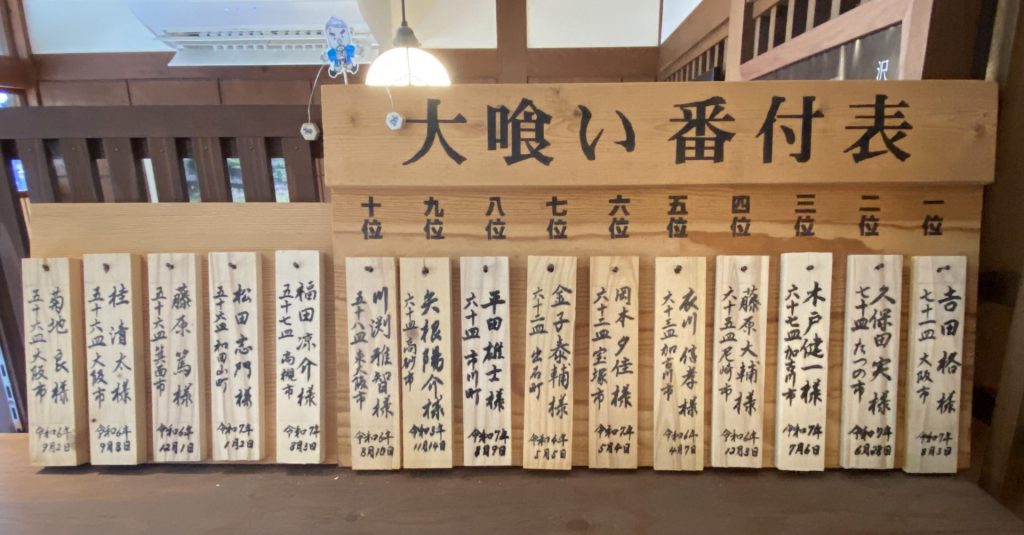 大喰い番付表
一位
吉田 格 様
七十一皿 大阪市
令和7年
8月3日
二位
久保田 実 様
七十皿 たつの市
令和7年
6月28日
三位
木戸健一様
六十七皿 加古川市
令和7年
7月6日
四位
藤原大輔様
六十五皿 尼崎市
令和6年
12月3日
五位
衣川信孝様
六十三皿 加古川市
令和6年
4月7日
六位
岡本夕佳様
六十三皿 宝塚市
令和7年
5月4日
七位
金子泰輔様
六十三皿 出石町
令和4年
5月5日
八位
平田雄士様
六十皿 市川町
令和7年
8月9日
九位
矢根陽介様
六十皿 高砂市
令和5年
11月14日
十位
川渕雅智様
五十八皿 東大阪市
令和6年
8月10日
福田凉介様
五十七皿 高槻市
令和7年
8月3日
松田志門様
五十六皿 和田山町
令和7年
1月2日
藤原 篤 様
五十六皿 箕面市
令和6年
12月1日
桂 清太様
五十六皿 大阪市
令和6年
9月8日
菊地 良 様
五十六皿 大阪市
令和6年
9月2日
沢